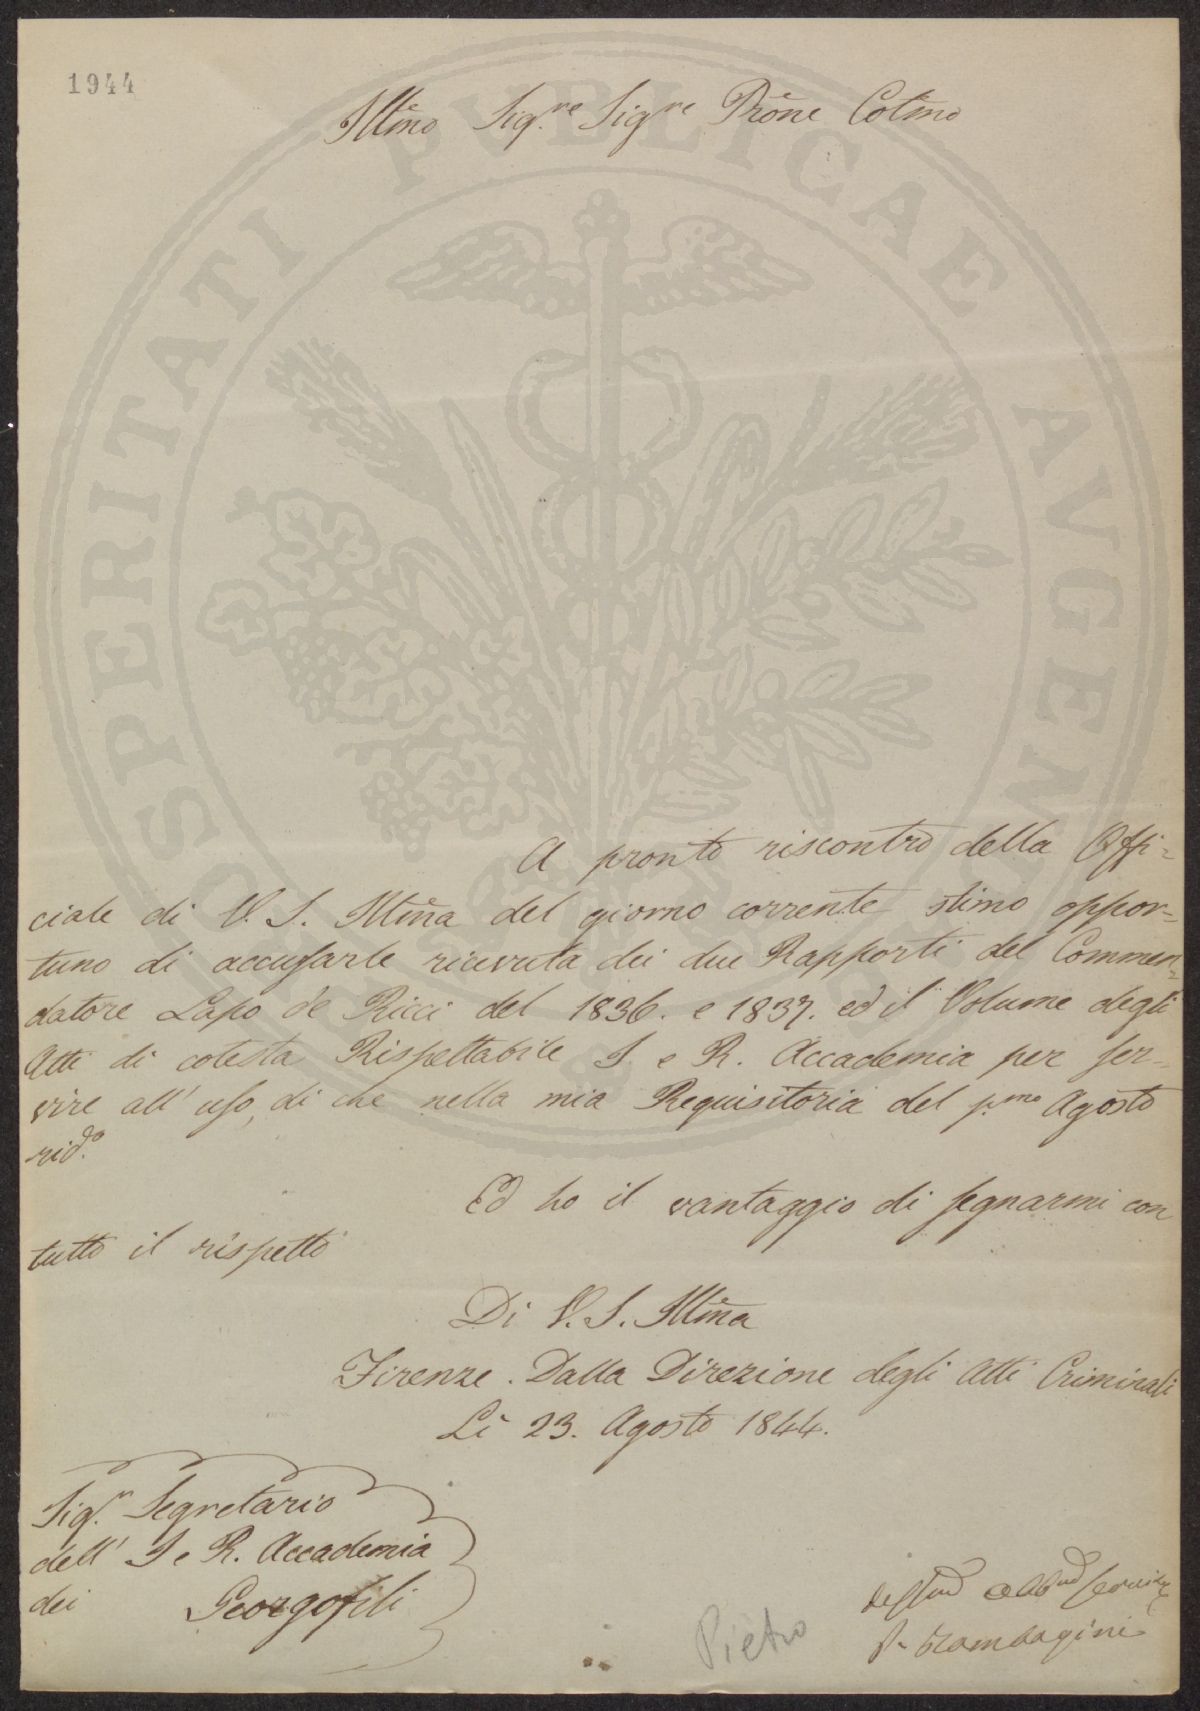 1944
Illmo Sig.re Sigre Prône Colmo
A pronto riscontro della Offi=
ciale di V. S. Illma del giorno corrente stimo oppor=
tuno di accusarle ricevuta dei due Rapporti del Commen=
datore Lapo de Ricci del 1836. e 1837. ed il Volume degli
Atti di cotesta Rispettabile I. e R. Accademia per ser=
vire all' uso, di che nella mia Requisitoria del p.mo Agosto
sud.o
Ed ho il vantaggio di segnarmi con
tutto il rispetto
Di V. S. Illma
Firenze. Dalla Direzione degli Atti Criminali
Li 23. Agosto 1844.
Sig.r Segretario
dell' I e R. Accademia
dei Georgofili
P.
Pietro
PROSPERITATI PVBLICAE AVGENDAE